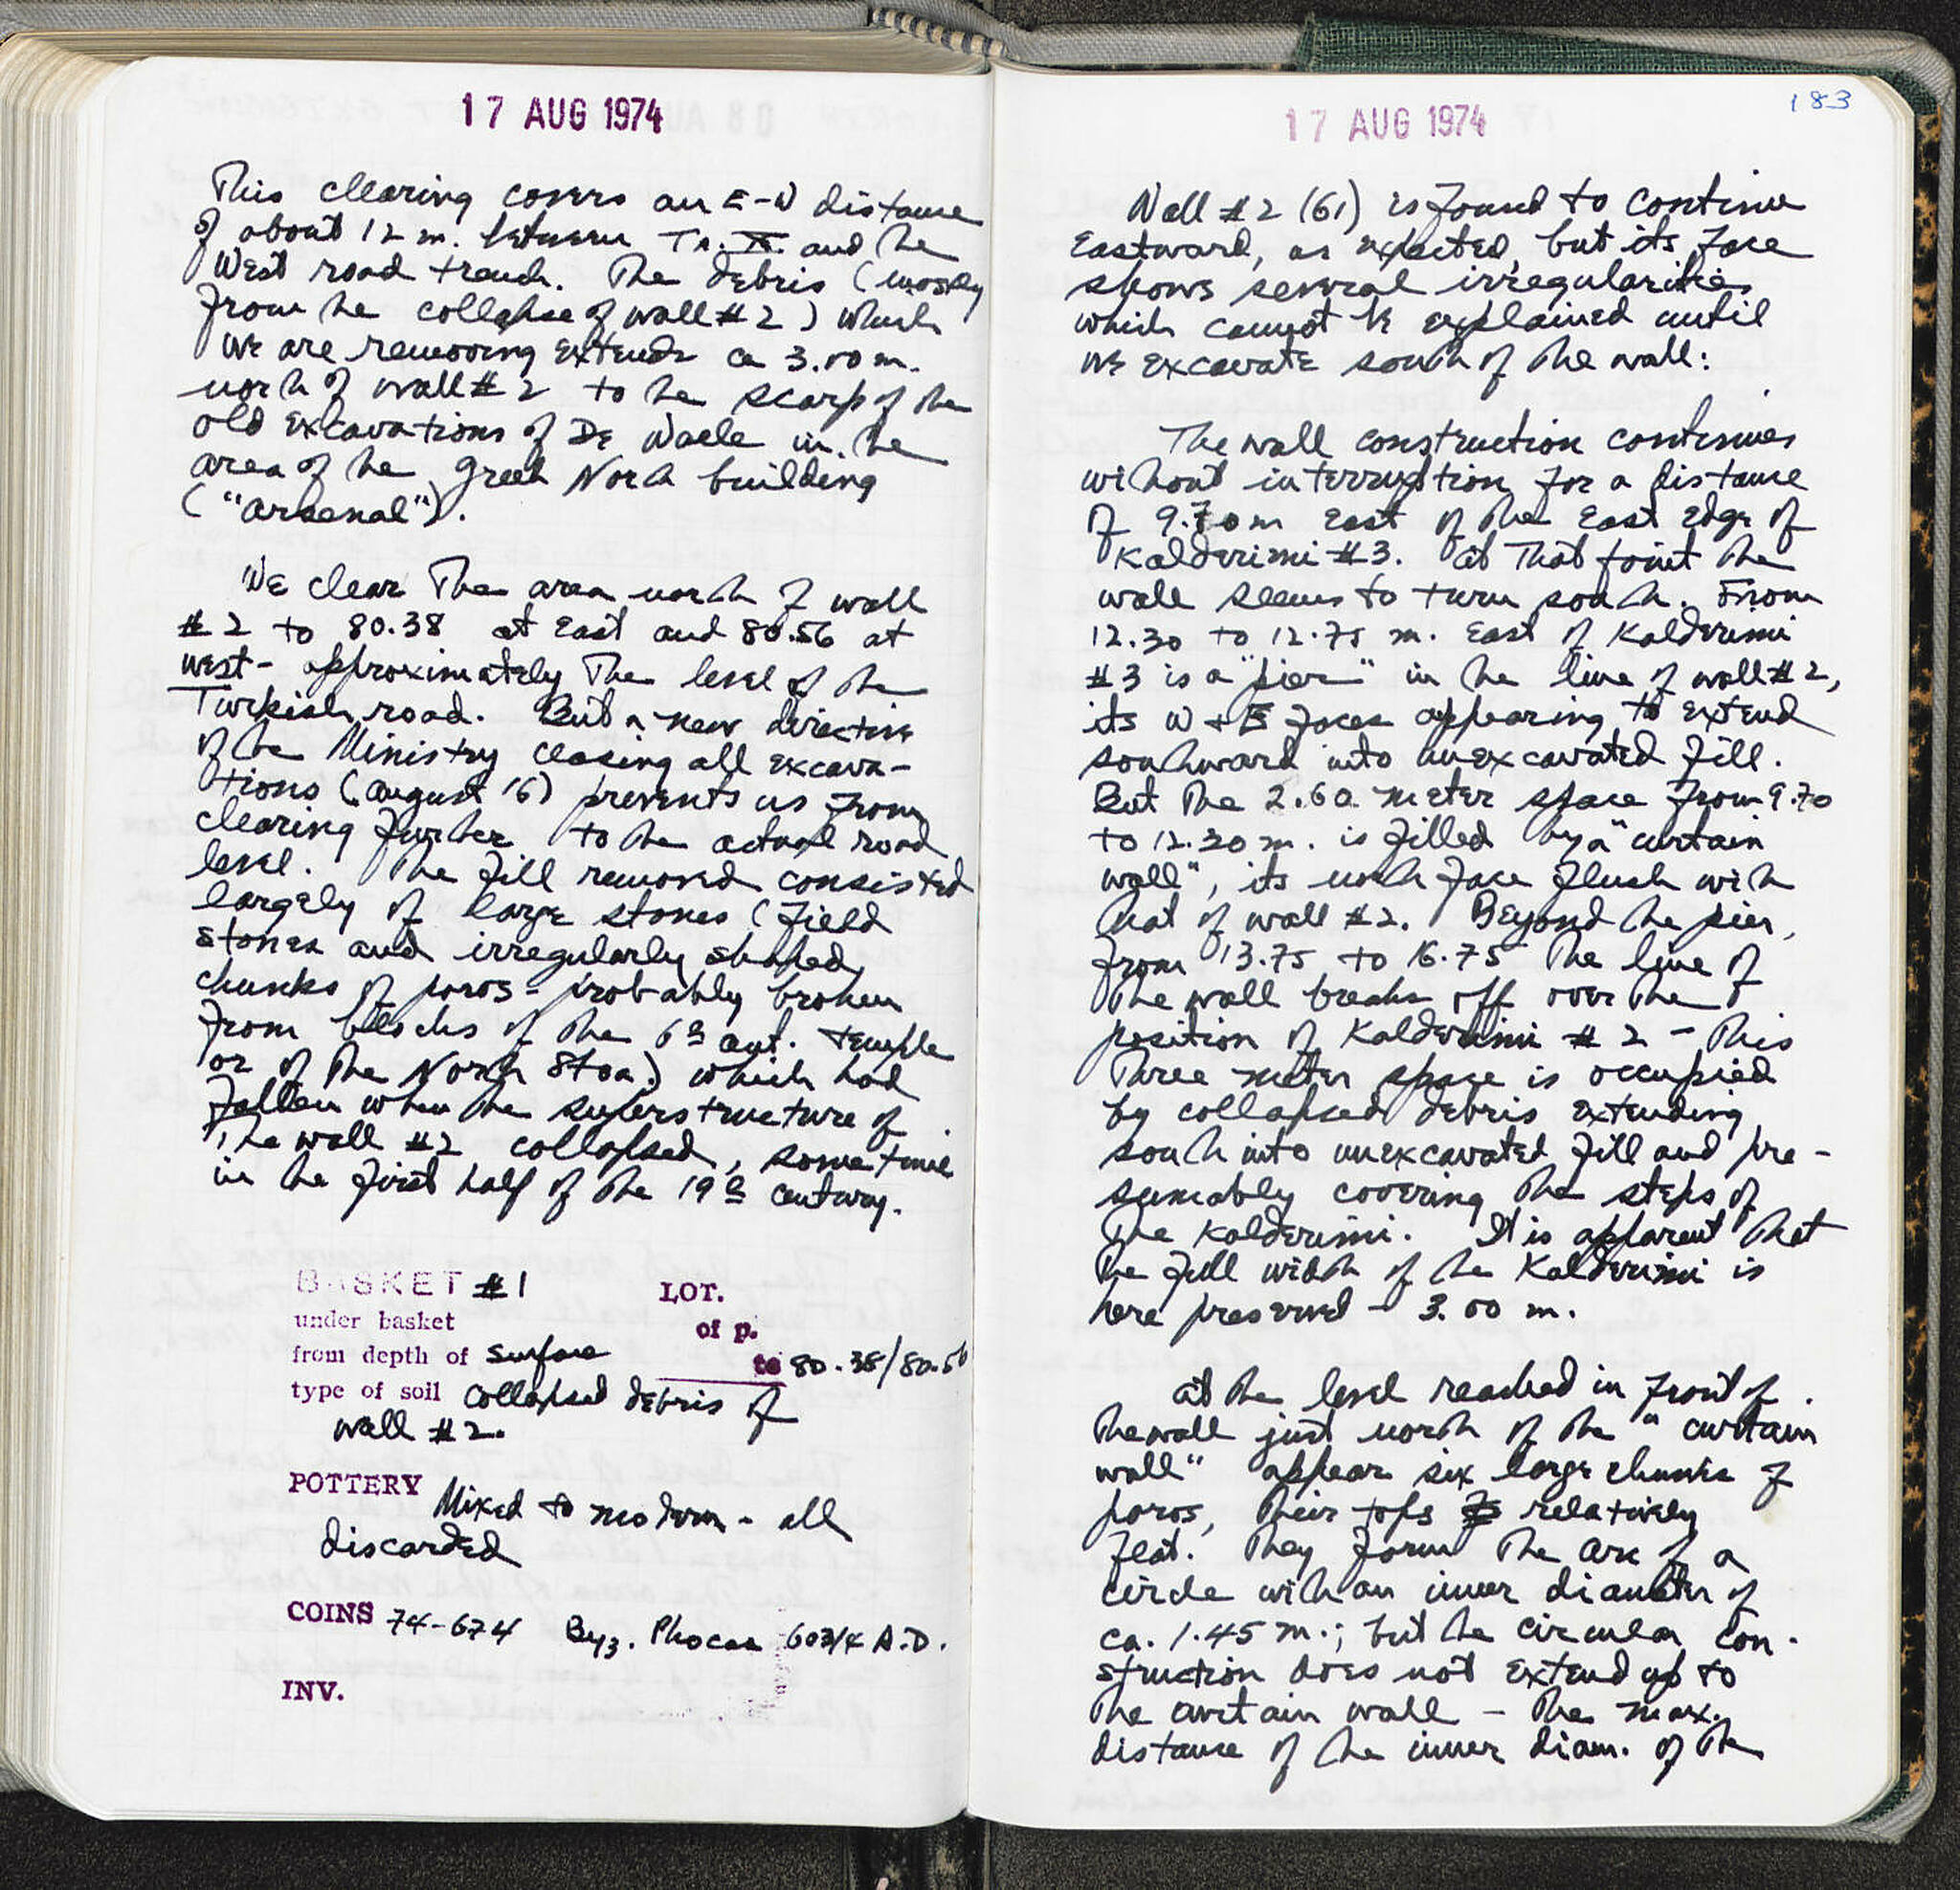 17 AUG 1974
This clearing covers an E-W distance
of about 12 m. between Tr. and the
West road trench. The debris (mostly
from the collapse of wall #2) which
we are removing extends ca 3.00 m.
north of wall #2 to the scarp of the
old excavations of De Waele in the
area of the Greek North building
("arsenal").
We clear the area north of wall
#2 to 80.38 at East and 80.56 at
west - approximately the level of the
Turkish road. But a new directive
of the Ministry closing all excava-
tions (August 16) prevents us from
clearing further to the actual road
level. The fill removed consisted
largely of large stones (field
stones and irregularly shaped
chunks of poros - probably broken
from blocks of the 6th cent. temple
or of the North Stoa) which had
fallen when the superstructure of
the wall #2 collapsed, sometime
in the first half of the 19th century.
BASKET #1 LOT.
under basket of p.
from depth of surface to 80.38/80.56
type of soil collapsed debris of
wall #2.
POTTERY Mixed to modern - all
discarded
COINS 74-674 Byz. Phocas 603/4 A.D.
INV.
183
17 AUG 1974
Wall #2 (61) is found to continue
Eastward, as expected, but its face
shows several irregularities
which cannot be explained until
we excavate south of the wall:
The wall construction continues
without interruption for a distance
of 9.70 m East of the East edge of
Kalderimi #3. At that point the
wall seems to turn south. From
12.30 to 12.75 m. East of Kalderimi
#3 is a "pier" in the line of wall #2,
its W + E faces appearing to extend
southward into unexcavated fill.
But the 2.60 meter space from 9.70
to 12.30 m. is filled by a "curtain
wall", its north face flush with
that of wall #2. Beyond the pier,
from 13.75 to 16.75 the line of
the wall breaks off over the
position of Kalderimi #2 - this
three meter space is occupied
by collapsed debris extending
south into unexcavated fill and pre-
sumably covering the steps of
the Kalderimi. It is apparent that
the full width of the Kalderimi is
here preserved - 3.00 m.
At the level reached in front of
the wall just north of the "curtain
wall" appear six large chunks of
poros, their tops relatively
flat. They form the arc of a
circle with an inner diameter of
ca. 1.45 m.; but the circular con-
struction does not extend up to
the curtain wall - the max.
distance of the inner diam. of the